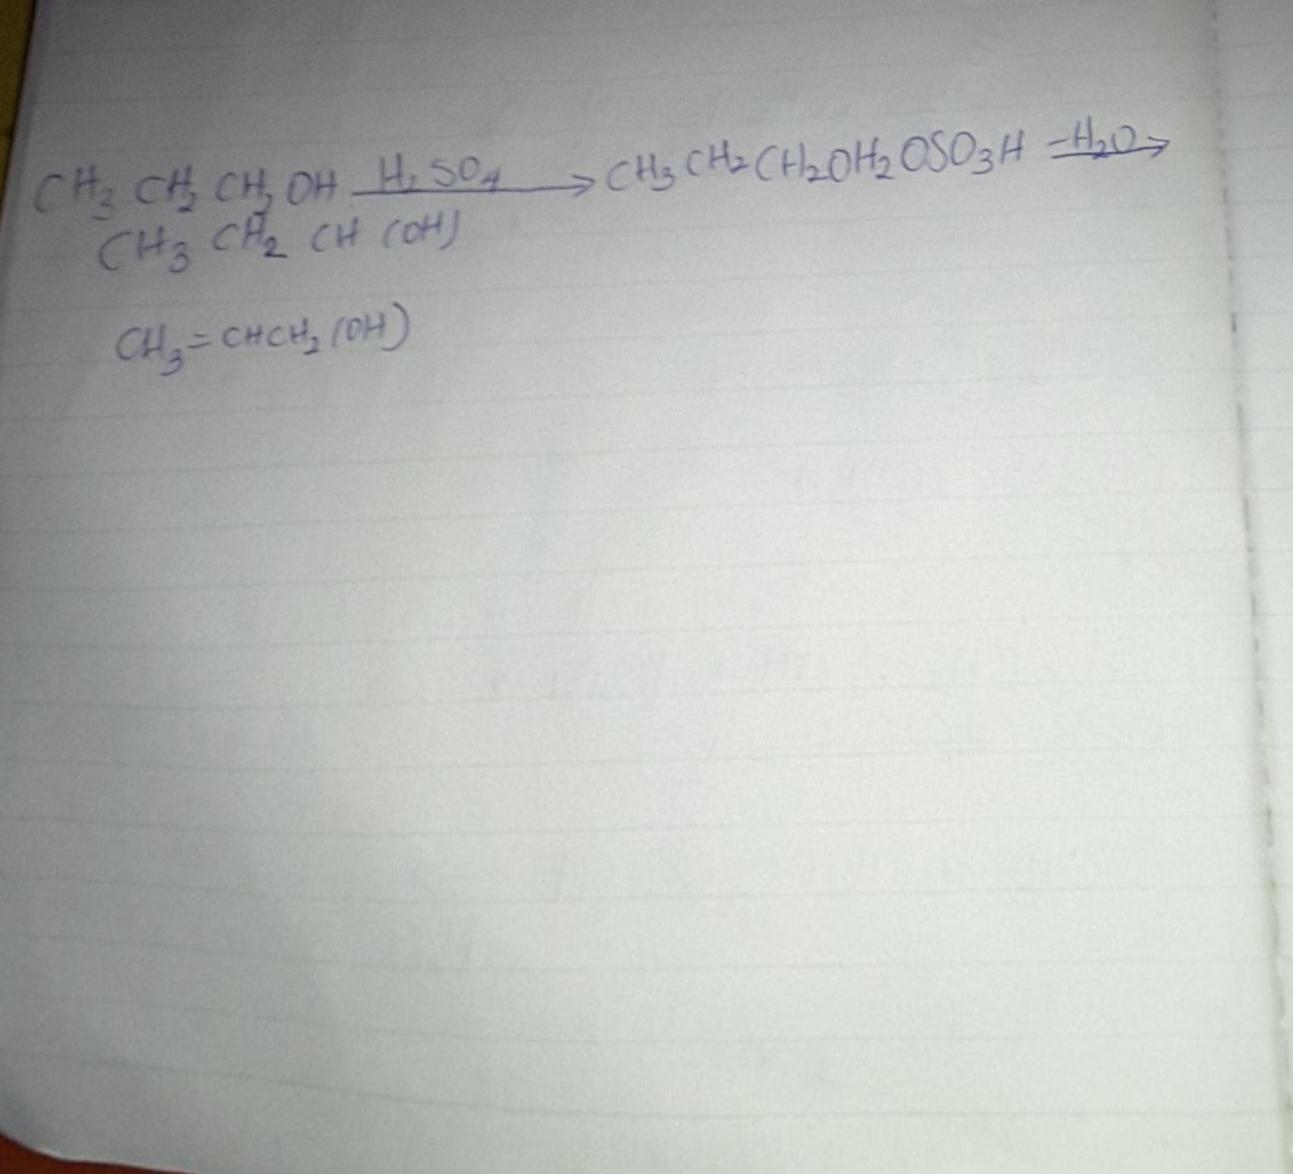 CH₃ CH₂ CH₂ OH H₂SO₄ → CH₃ CH₂ CH₂OH₂ OSO₃H -H₂O →
CH₃ CH₂ CH (OH)
CH₃ = CHCH₂ (OH)